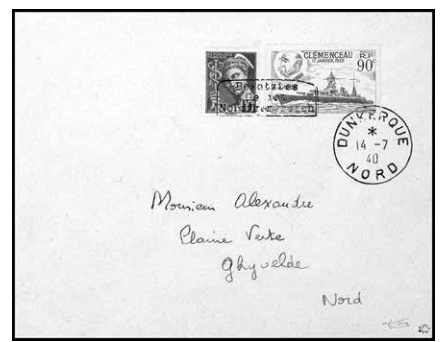 CLEMENCEAU
17 JANVIER 1939
RF
90c
Besetztes
Gebiet
Nordfrankreich
DUNKERQUE
*
14 -7
40
NORD
Monsieur Alexandre
Plaine Verte
Ghyvelde
Nord